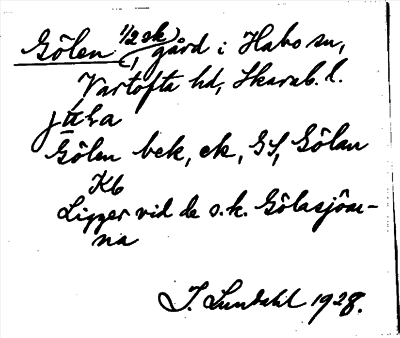 Gölen, 1/2 sk gård i Habo sn,
Vartofta hd, Skarab. l.
Gölen bek, ek, GS, Gölan
Kb
Ligger vid de s.k. Gölasjöar-
na
I. Lundahl 1928.